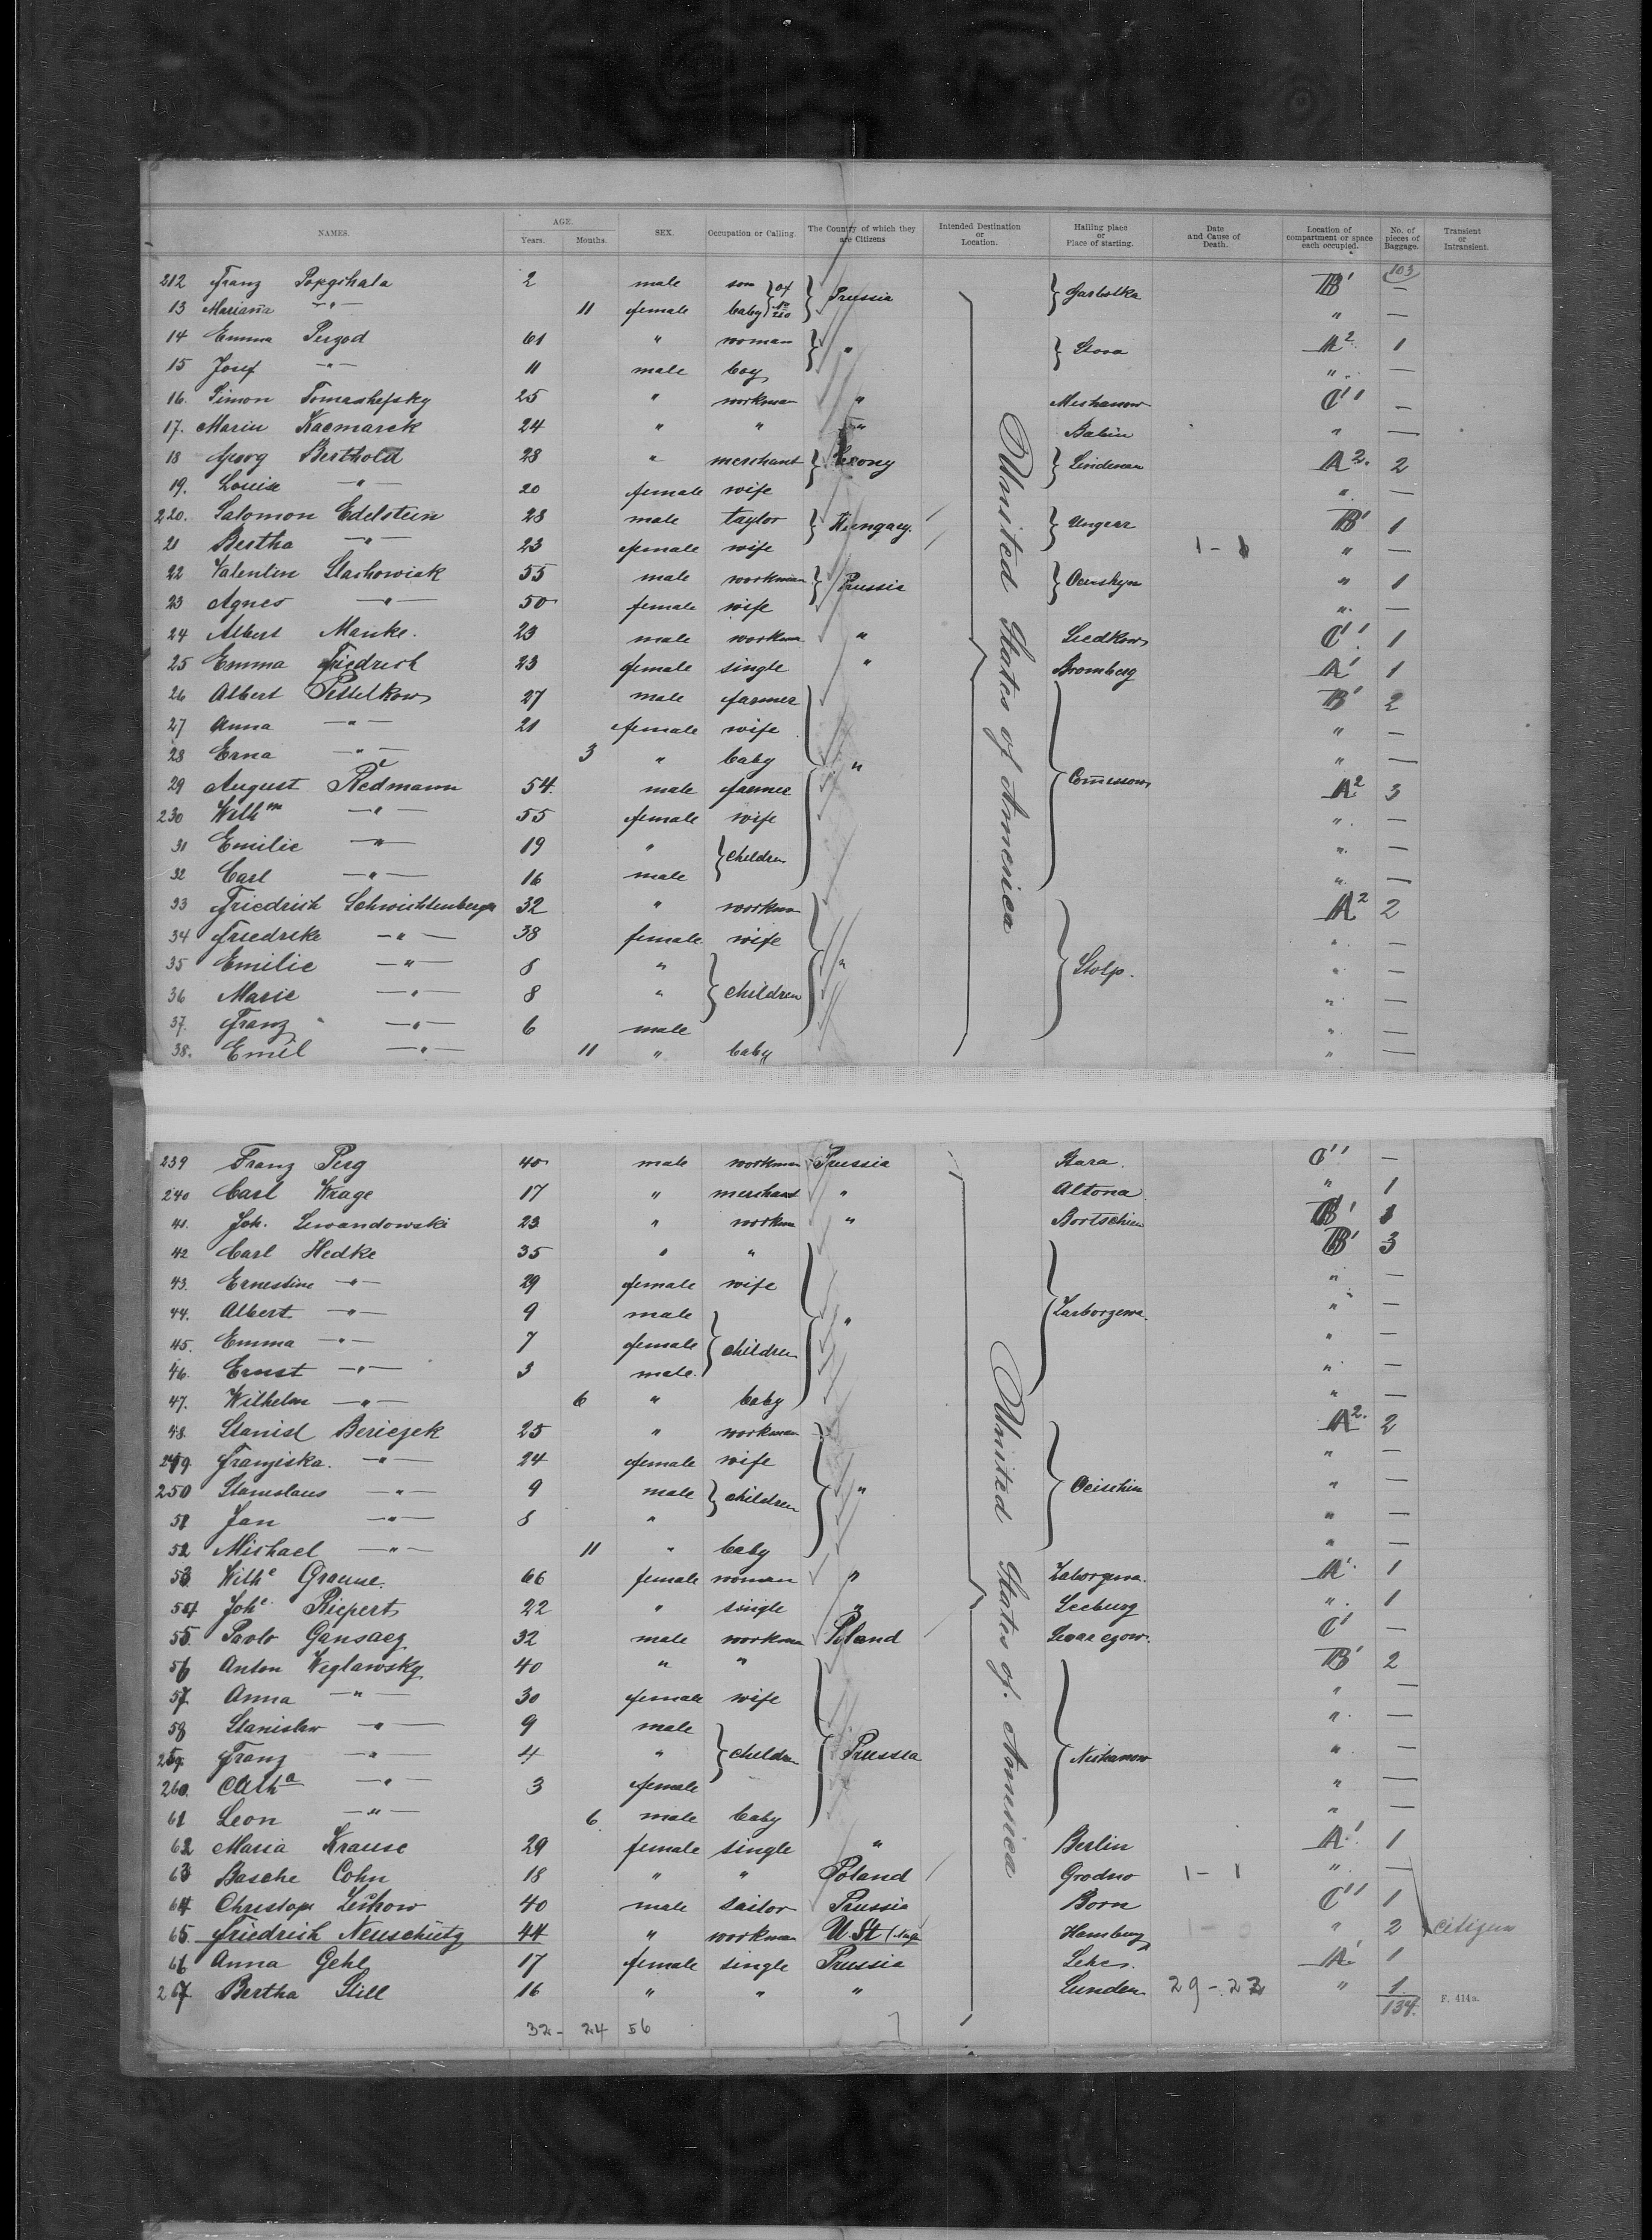 NAMES. AGE. Years. Months. SEX. Occupation or Calling. The Country of which they are Citizens Intended Destination or Location. Hailing place or Place of starting. Date and Cause of Death. Location of compartment or space each occupied. No. of pieces of Baggage. Transient or Intransient.
103
212 Franz Popgihala 2 male son of Prussia Garbolka B' —
13 Mariana —"— 11 female baby 210 " —
14 Emma Pergod 61 " woman " Stova A2 1
15 Josef —"— 11 male boy " —
16. Simon Tomashefsky 25 " workman " Mishanow C'' —
17. Marin Kacmarek 24 " " " Babin " —
18 Georg Berthold 28 " merchant Saxony Lindenau A2. 2
19. Louise —"— 20 female wife " —
220. Salomon Edelstein 28 male taylor Hungary. Ungarr B' 1
21 Bertha —"— 23 female wife 1 - 1 " —
22 Valentin Stachowiak 55 male workman Prussia " 1
23 Agnes —"— 50 female wife " —
24 Albert Manke. 23 male workman " Leedkow C'' 1
25 Emma Friedrich 23 female single " Bromberg A' 1
26 Albert Pettelkow 27 male farmer B' 2
27 Anna —"— 21 female wife " —
28 Erna —"— 3 " baby " " —
29 August Redmann 54. male farmer Comessow A2 3
230 Wilhm —"— 55 female wife " —
31 Emilie —"— 19 " children " —
32 Carl —"— 16 male " —
33 Friedrich Schwichtenberger 32 " workman A2 2
34 Friedrike —"— 38 female wife " —
35 Emilie —"— 8 " " Stolp. " —
36 Marie —"— 8 " children " —
37. Franz —"— 6 male " —
38. Emil —"— 11 " baby " —
United States of America
239 Franz Perg 40 male workman Prussia Stara. C'' —
240 Carl Krage 17 " merchant " Altona " 1
41. Joh. Lewandowski 23 " workman " Bortschin B' 1
42 Carl Hedke 35 " " B' 3
43. Ernestine —"— 29 female wife " —
44. Albert —"— 9 male " Zarborzewa. " —
45. Emma —"— 7 female children " —
46. Ernst —"— 3 male. " —
47. Wilhelm —"— 6 " baby " —
48. Stanisl Beriezek 25 " workman A2. 2
249 Franziska. —"— 24 female wife " —
250 Stanislaus —"— 9 male children " Ocischin " —
51 Jan —"— 8 " " —
52 Michael —"— 11 " baby " —
53 Wilhe Graune. 66 female woman " Zaborzewa. A' 1
54 Johe Riepert 22 " single " Leeburg " 1
55. Pavlo Gansacz 32 male workman Poland C' —
56 Anton Weglawsky 40 " " B' 2
57 Anna —"— 30 female wife " —
58 Stanislaw —"— 9 male " —
259. Franz —"— 4 " children Prussia Nishanow " —
260. Catha —"— 3 female " —
61 Leon —"— 6 male baby " —
62 Maria Krause 29 female single " Berlin A' 1
63 Basche Cohn 18 " " Poland Grodno 1 - 1 " —
64 Christoph Leskow 40 male sailor Prussia Born C'' 1
65. Friedrich Neuschütz 44 " workman U. St. Hamburg 1 - 0 " 2 citizen
66 Anna Gehl 17 female single Prussia A' 1
267 Bertha Still 16 " " " Lunden 29 - 22 " 1
United States of America
134. F. 414a.
32 - 24 56